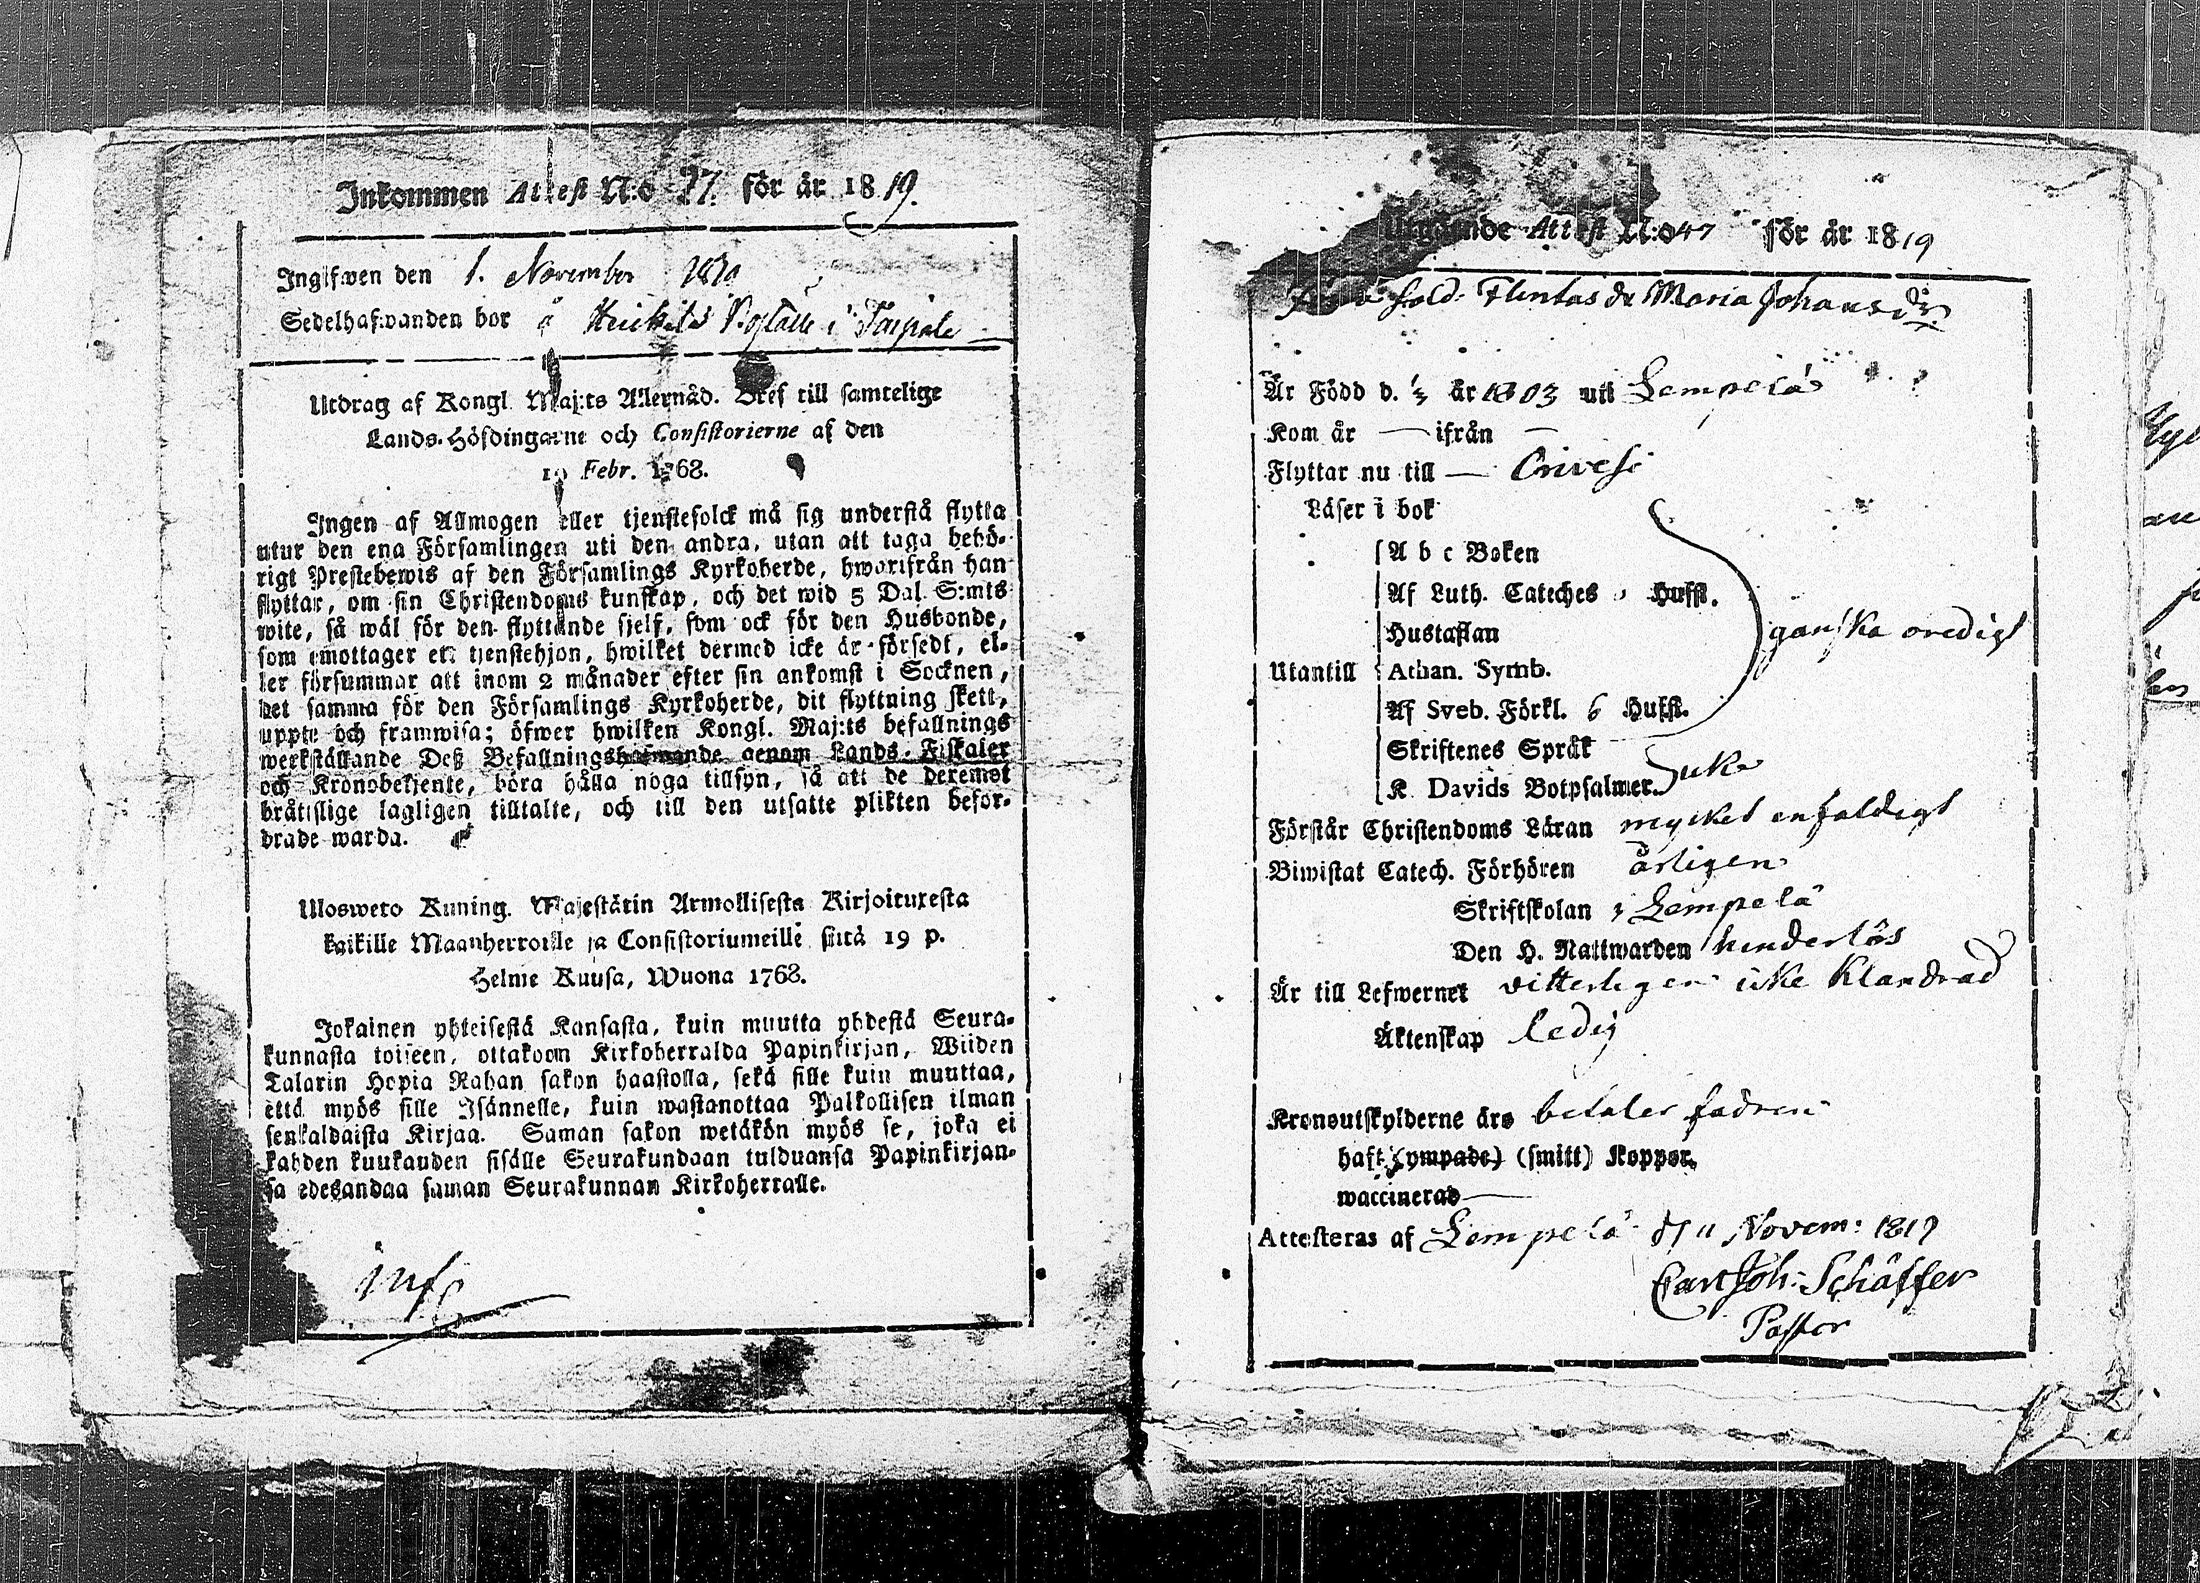 Inkommen Attest N:o 27. för år 1819.
Ingifwen den 1. November
Sedelhafwanden bor å Boställe i Taipale
Utdrag af Kongl. Maj:ts Allernåd. Bref till samtelige
Lands-Höfdingarne och Consistorierne af den
19 Febr. 1768.
Ingen af Allmogen eller tjenstefolck må sig understå flytta
utur den ena Församlingen uti den andra, utan att taga behö-
rigt Prestebewis af den Församlings Kyrkoherde, hworifrån han
flyttar, om sin Christendoms kunskap, och det wid 5 Dal. S:mts
wite, så wäl för den flyttande sjelf, som ock för den Husbonde,
som emottager ett tjenstehjon, hwilket dermed icke är försedt, el-
ler försummar att inom 2 månader efter sin ankomst i Socknen,
det samma för den Församlings Kyrkoherde, dit flyttning skett,
uppte och framwisa; öfwer hwilken Kongl. Maj:ts befallnings
werkställande Deß Befallningshafwande genom Lands-Fiskaler
och Kronobetjente, böra hålla noga tillsyn, så att de deremot
bråttslige lagligen tilltalte, och till den utsatte plikten befor-
drade warda.
Ulosweto Kuning. Majestätin Armollisesta Kirjoituxesta
kaikille Maanherroille ja Consistoriumeille siitä 19 p.
Helme Kuusa, Wuona 1768.
Jokainen yhteisestä Kansasta, kuin muutta yhdestä Seura-
kunnasta toiseen, ottakoon Kirkoherralda Papinkirjan, Wiiden
Talarin Hopia Rahan sakon haastolla, sekä sille kuin muuttaa,
että myös sille Isännelle, kuin wastanottaa Palkollisen ilman
senkaldaista Kirjaa. Saman sakon wetäkön myös se, joka ei
kahden kuukauden sisälle Seurakundaan tulduansa Papinkirjan-
sa edesandaa saman Seurakunnan Kirkoherralle.
Utgående Attest N:o 47 för år 1819
Sold: Flintas dr Maria Johansdr
Är Född d. 1/3 år 1803 uti Lempelä
Kom år — ifrån —
Flyttar nu till — Orivesi
Läser i bok
A b c Boken
Af Luth. Cateches Hufst.
Hustaflan
ganska oredigt
Utantill Athan. Symb.
Af Sveb. Förkl. 6 Hufst.
Skriftenes Språk
K. Davids Botpsalmer. icke
Förstår Christendoms Läran mycket enfaldigt
Biwistat Catech. Förhören årligen
Skriftskolan i Lempelä
Den H. Nattwarden hinderlös
Är till Lefwernet vitterligen icke klandrad
Äktenskap ledig
Kronoutskylderne äro betaler fadren
haft (ympade) (smitt) Koppor.
waccinerad —
Attesteras af Lempelä d 11 Novem: 1819
Carl Joh: Schäffer
Pastor